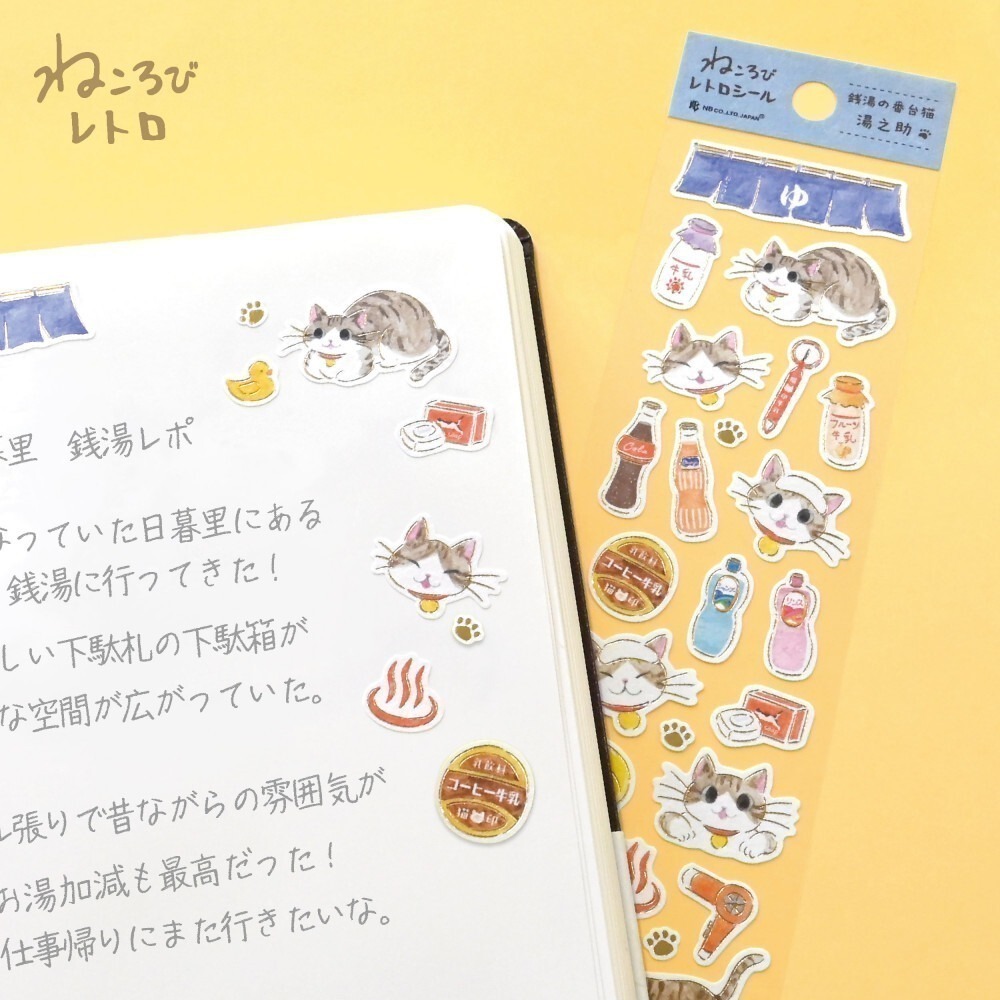 ねころび
レトロ
ねころび
レトロシール
NB CO.,LTD. JAPAN
銭湯の番台猫
湯之助
ゆ
牛乳
フルーツ
牛乳
Cola
乳飲料
コーヒー牛乳
猫印
リンス
里 銭湯レポ
なっていた日暮里にある
銭湯に行ってきた！
しい下駄札の下駄箱が
な空間が広がっていた。
張りで昔ながらの雰囲気が
お湯加減も最高だった！
仕事帰りにまた行きたいな。
乳飲料
コーヒー牛乳
猫印